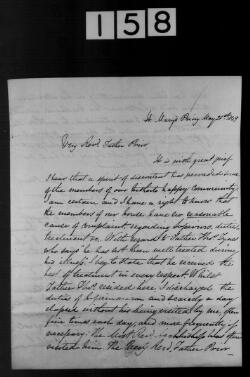 158
St. Mary's Priory May 25th
Very Revd. Father Prior
It is with great grief
I hear that a spirit of discontent has pervaded some
of the members of our hitherto happy community.
I am certain and I have a right to know that
the members of our house have no reasonable
cause of complaint regarding Superiors, diet,
treatment &c. With regard to Father Thos.
who says he has not been well treated during
his illness, I beg to state that he received the
best of treatment in every respect. Whilst
Father Thos. resided here I discharged the
duties of Infirmarian and scarcely a day
elapsed without his being visited by me, often
five times each day, and more frequently if
necessary. The Most Revd. Archbishop was often
visited him. The Very Revd. Father Prior